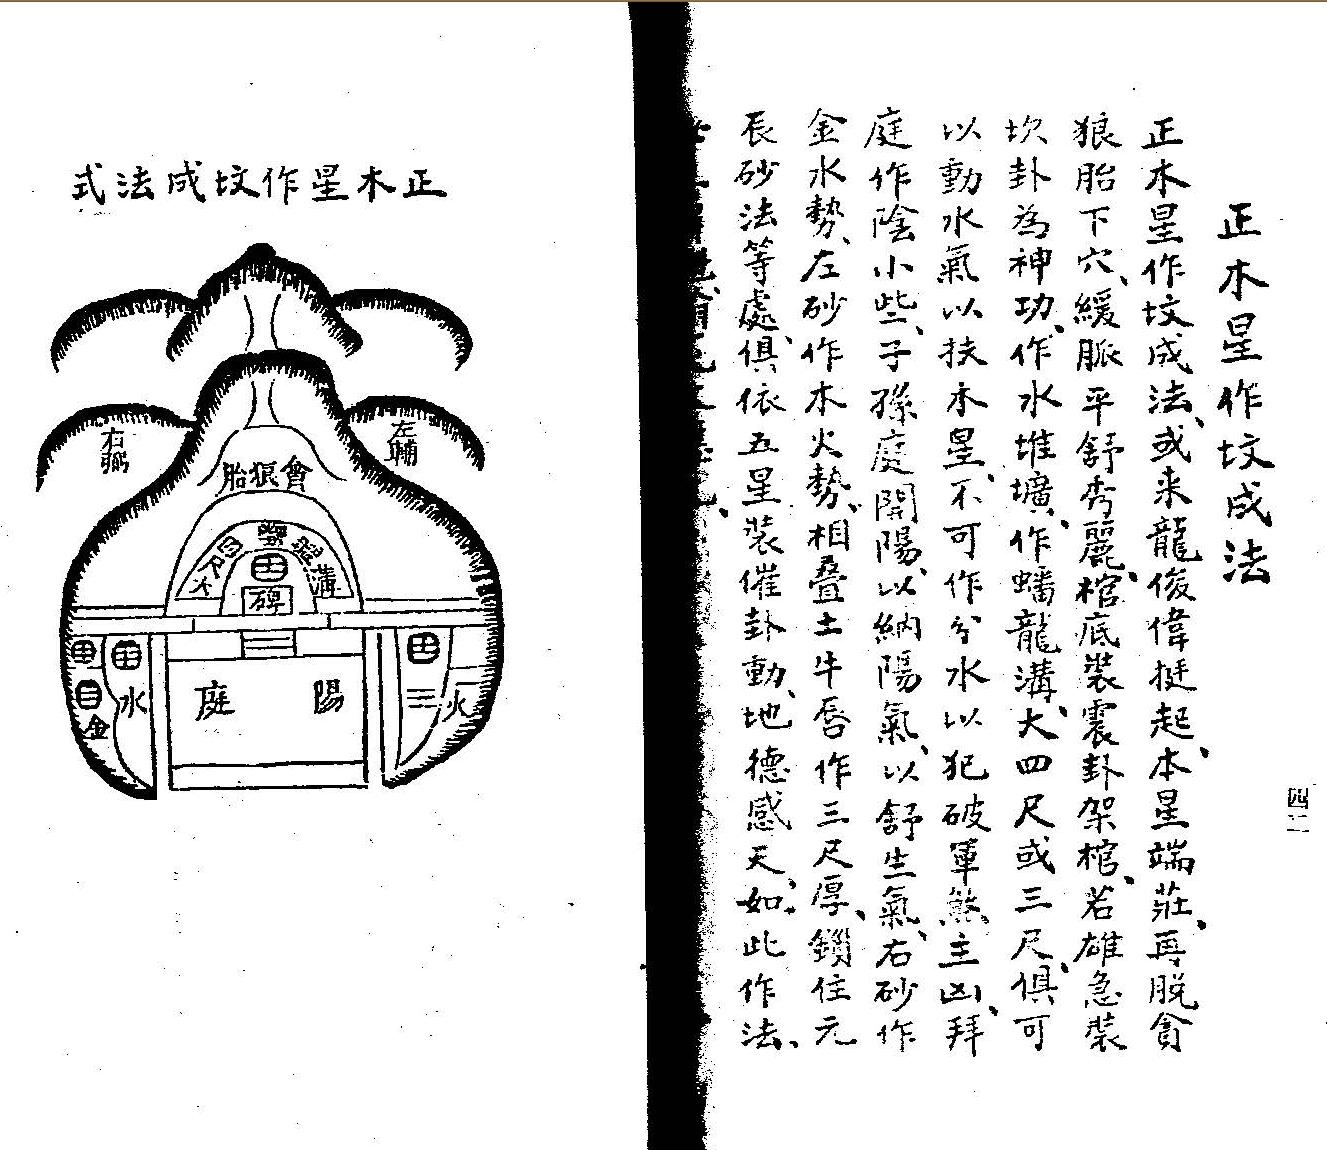 四二
正木星作坟成法
正木星作坟成法、或来龍俊偉挺起、本星端莊、再脱貪
狼胎下穴、緩脈平舒秀麗、棺底裝震卦架棺、若雄急裝
坎卦為神功、作水堆壙、作蟠龍溝、大四尺或三尺、俱可
以動水氣以扶木星、不可作分水以犯破軍煞主凶、拜
庭作陰小些、子孫庭開陽、以納陽氣、以舒生氣、右砂作
金水勢、左砂作木火勢、相叠土牛唇作三尺厚、鎖住元
辰砂法等處、俱依五星裝催卦動、地德感天、如此作法、
正木星作坟成法式
左輔
右弼
貪狼胎
溝
碑
陽庭
水
金
火